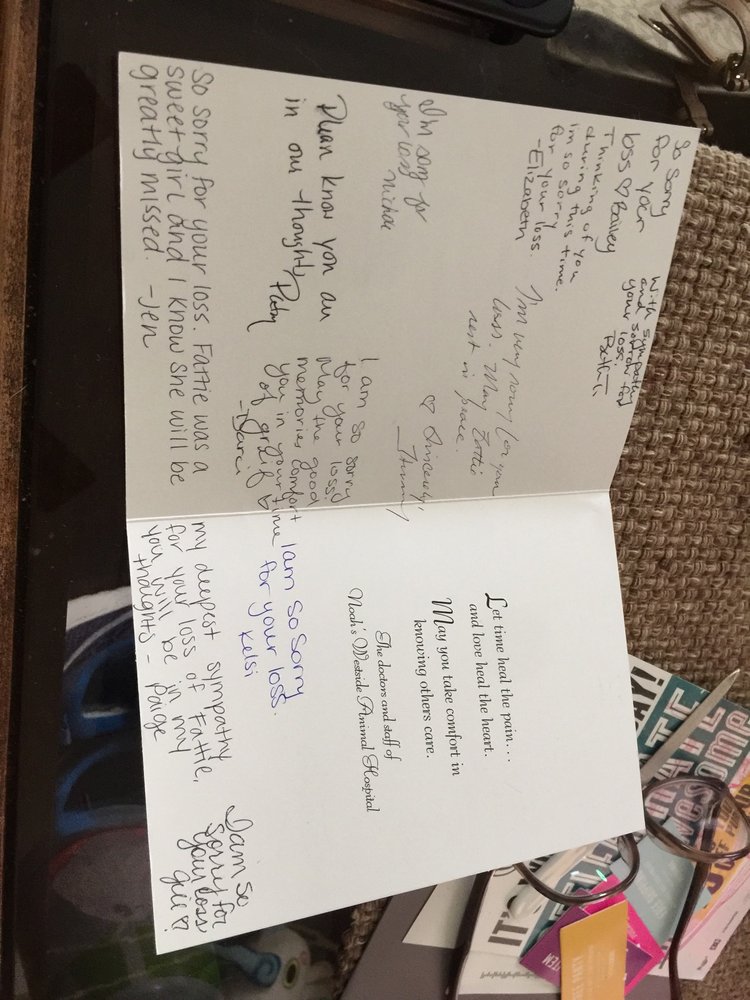 So sorry
for your
loss ♡ Bailey
Thinking of you
during this time.
Im so sorry
for your loss.
-Elizabeth
With sympathy
and sorrow for
your loss.
Beth T.
I'm very sorry for your
loss. May Fattie
rest in peace.
♡ Sincerely,
I'm sorry for
your loss
Please know you are
in our thoughts
I am so sorry
for your loss.
May the good
memories comfort
you in your time
of greif
-Darci
So sorry for your loss. Fattie was a
sweet girl and I know she will be
greatly missed. -Jen
Let time heal the pain...
and love heal the heart.
May you take comfort in
knowing others care.
The doctors and staff of
Noah's Westside Animal Hospital
I am so sorry
for your loss.
Kelsi
my deepest sympathy
for your loss of Fattie,
you will be in my
thoughts - Paige
I am so
sorry for
your loss
AY!
IT'S